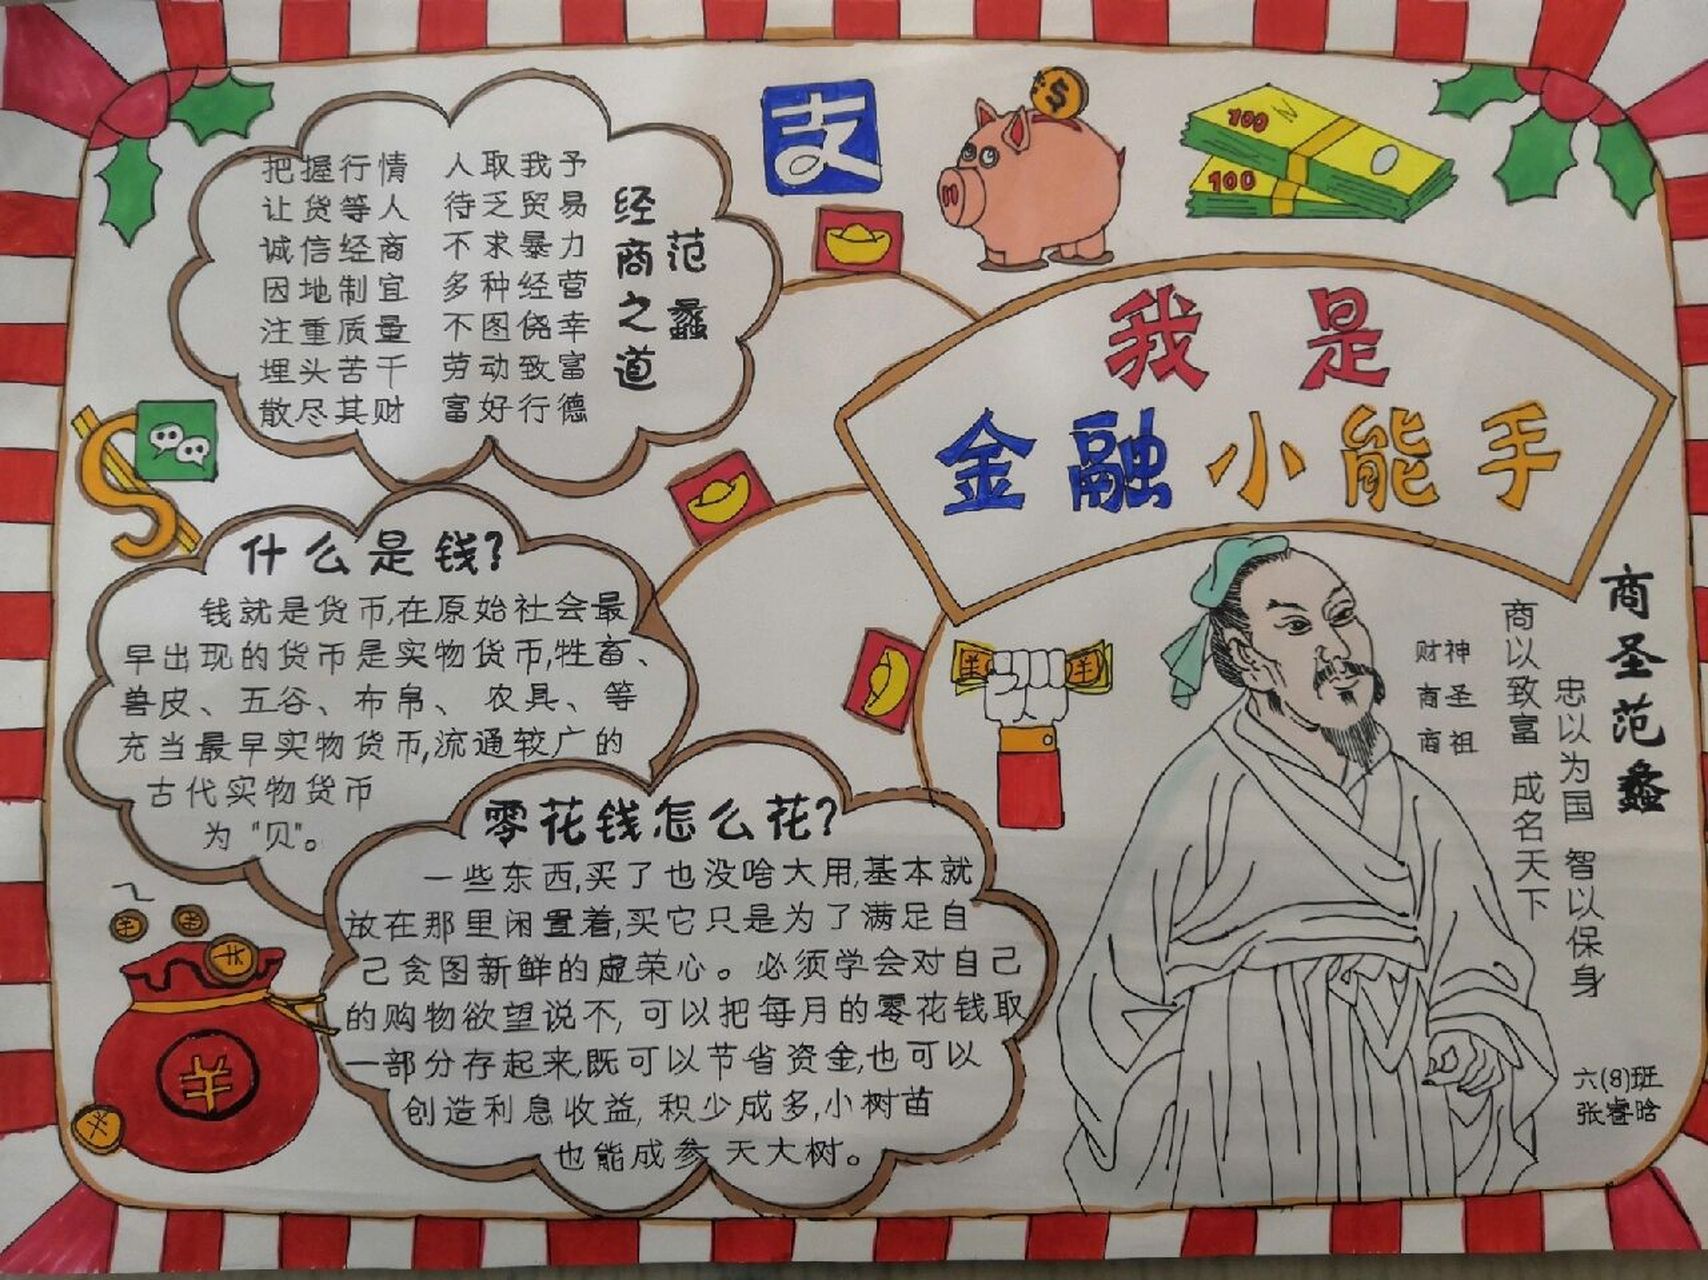 范蠡
经商之道
把握行情 人取我予
让货等人 待乏贸易
诚信经商 不求暴力
因地制宜 多种经营
注重质量 不图侥幸
埋头苦干 劳动致富
散尽其财 富好行德
支
100
100
我是
金融小能手
什么是钱?
钱就是货币,在原始社会最
早出现的货币是实物货币,牲畜、
兽皮、五谷、布帛、农具、等
充当最早实物货币,流通较广的
古代实物货币
为"贝"。
零花钱怎么花?
一些东西,买了也没啥大用,基本就
放在那里闲置着,买它只是为了满足自
己贪图新鲜的虚荣心。必须学会对自己
的购物欲望说不,可以把每月的零花钱取
一部分存起来,既可以节省资金,也可以
创造利息收益,积少成多,小树苗
也能成参天大树。
商圣范蠡
忠以为国 智以保身
商以致富 成名天下
财神
商圣
商祖
六(8)班
张睿晗